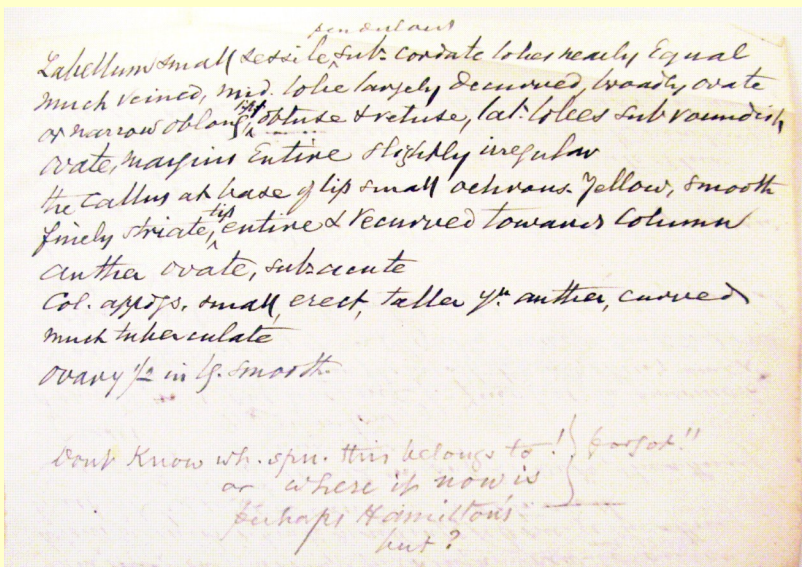 pendulous
Labellum small sessile ^ sub-cordate lobes nearly Equal
much veined, mid. lobe largely decurved, broadly ovate
or narrow oblong, tip ^ obtuse & retuse, lat. lobes subroundish
ovate, margins Entire slightly irregular
the Callus at base of lip small ochrous-Yellow, smooth
finely striate, tip ^ entire & recurved towards Column
anther ovate, subacute
Col. appdgs. small, erect, taller yn. anther, curved
much tuberculate
ovary 1/2 in lg. smooth.
Dont Know wh. spn. this belongs to! } forgot!!
or where it now is
perhaps Hamilton's
but?